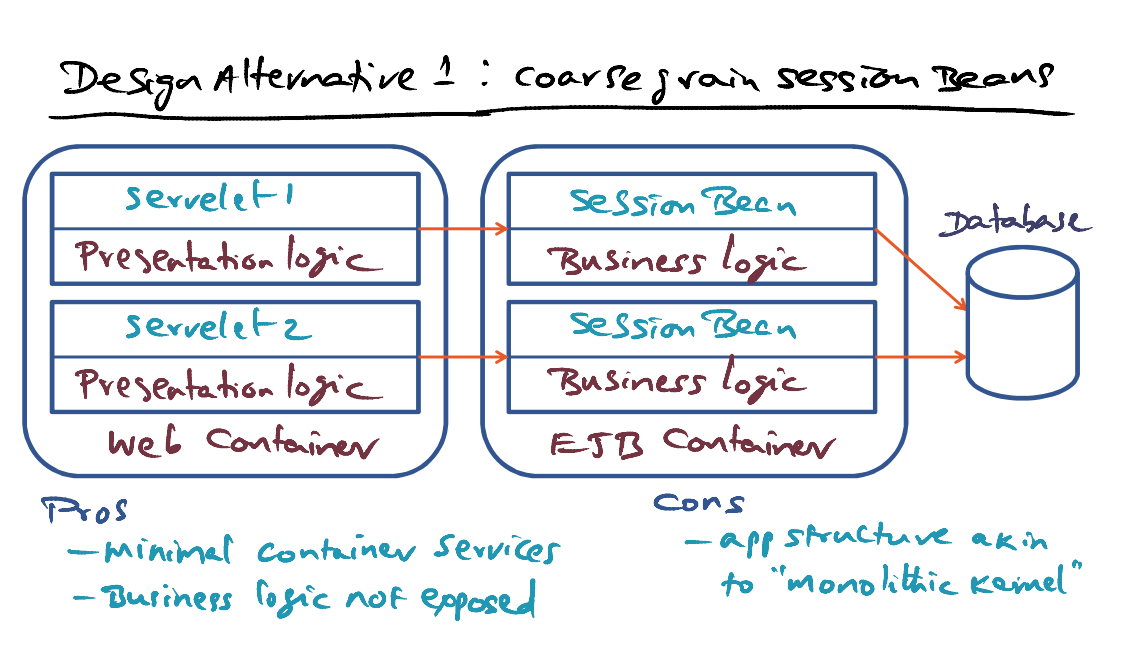 Design Alternative 1 : coarse grain session Beans
Servelet 1
Presentation logic
Servelet 2
Presentation logic
Web Container
Session Bean
Business logic
Session Bean
Business logic
EJB Container
Database
Pros
- Minimal container services
- Business logic not exposed
Cons
- app structure akin
to "monolithic kernel"